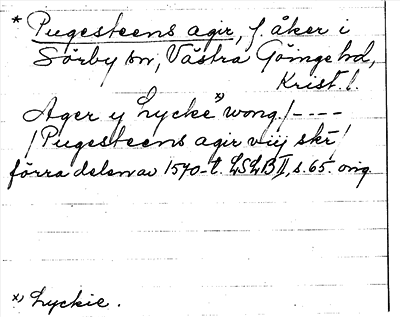 * Pugesteens agir, f. åker i
Sörby sn, Västra Göinge hd,
Krist. l.
Ager y Lycke x) wong./----
/Pugesteens agir viij skr/
förra delen av 1540-t. LSLB II, s. 65. orig.
x) Lyckie.